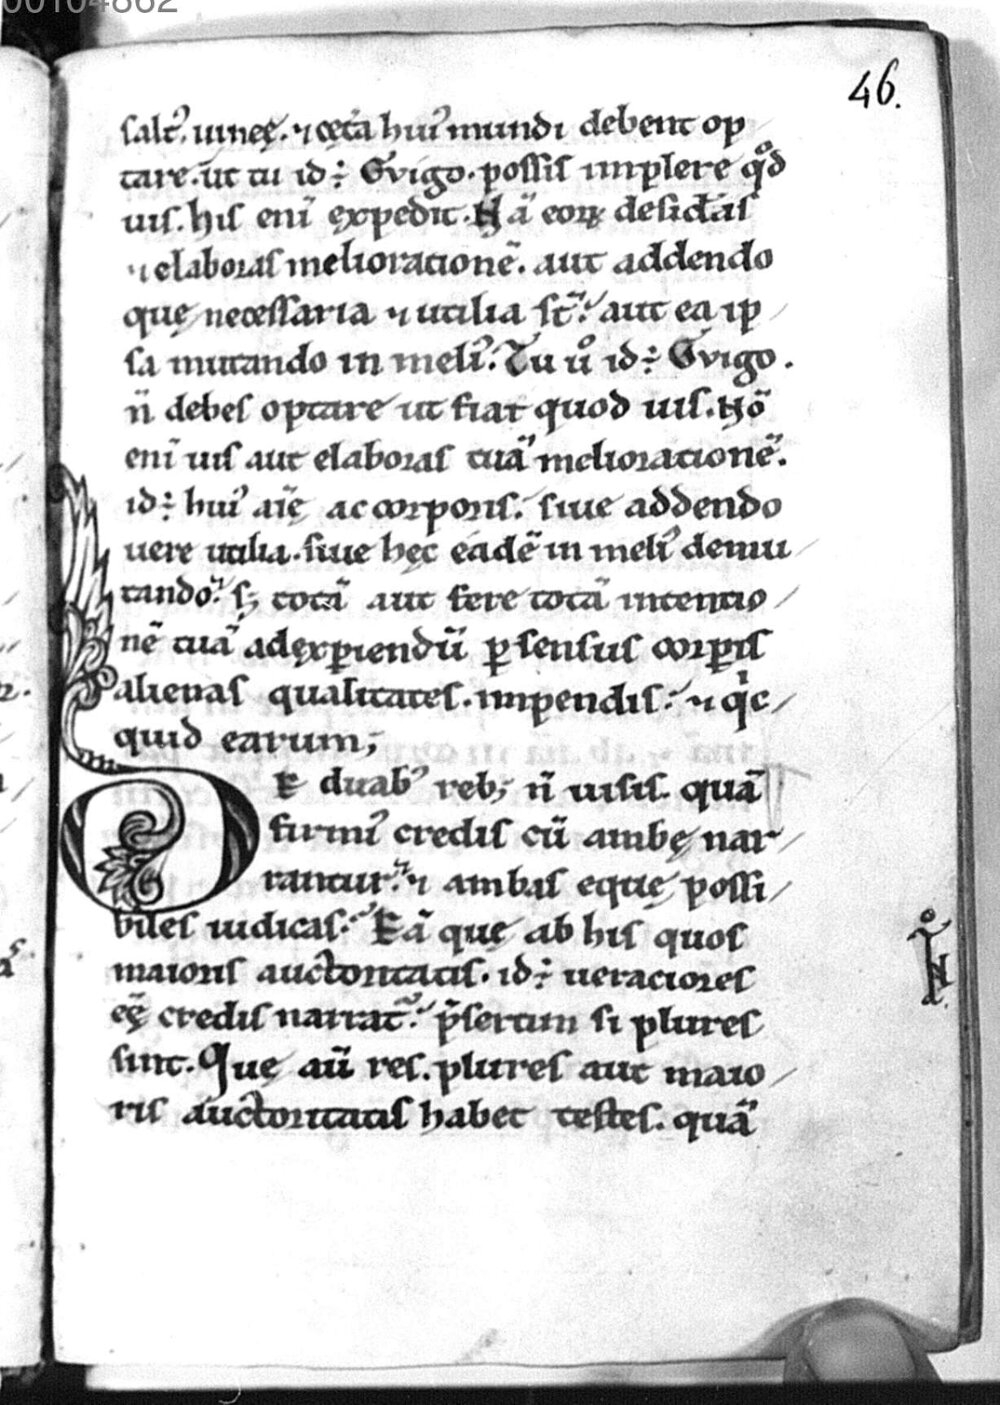 00104862
46.
salt᷒. uineę. ⁊ cęťa hui᷒ mundi debent op
tare. ut tu id÷ Gvigo. possis implere qͦd
uis. his eni̅ ęxpedit. Na̅ eoꝝ desid̅as
⁊ elaboras melioratione̅. aut addendo
quę necessaria ⁊ utilia st̅. aut ea ip
sa mutando in meli᷒. Tu uͦ id÷ Gvigo.
n̅ debes optare ut fiat quod uis. No̅
eni̅ uis aut elaboras tua̅ melioratione̅.
id÷ hui᷒ ai̅ę ac corporis. siue addendo
uere utilia. siue hęc eade̅ in meli᷒ demu
tando. sꝫ tota̅ aut fere tota̅ intentio
ne̅ tua̅ adęxꝑiendu̅ ꝑ sensus corꝑis
alienas qualitates. impendis. ⁊ qͥc
quid earum;
DE duab᷒ reb; n̅ uisis. qua̅
firmi᷒ credis cu̅ ambę nar
rantur. ⁊ ambas equę possi
biles iudicas. Ea̅ quę ab his quos
maioris auctoritatis. id÷ ueraciores
ee̅ credis narrat᷒. p̅sertim si plures
sint. Quę au̅ res. plures aut maio
ris auctoritatis habet testes. qua̅